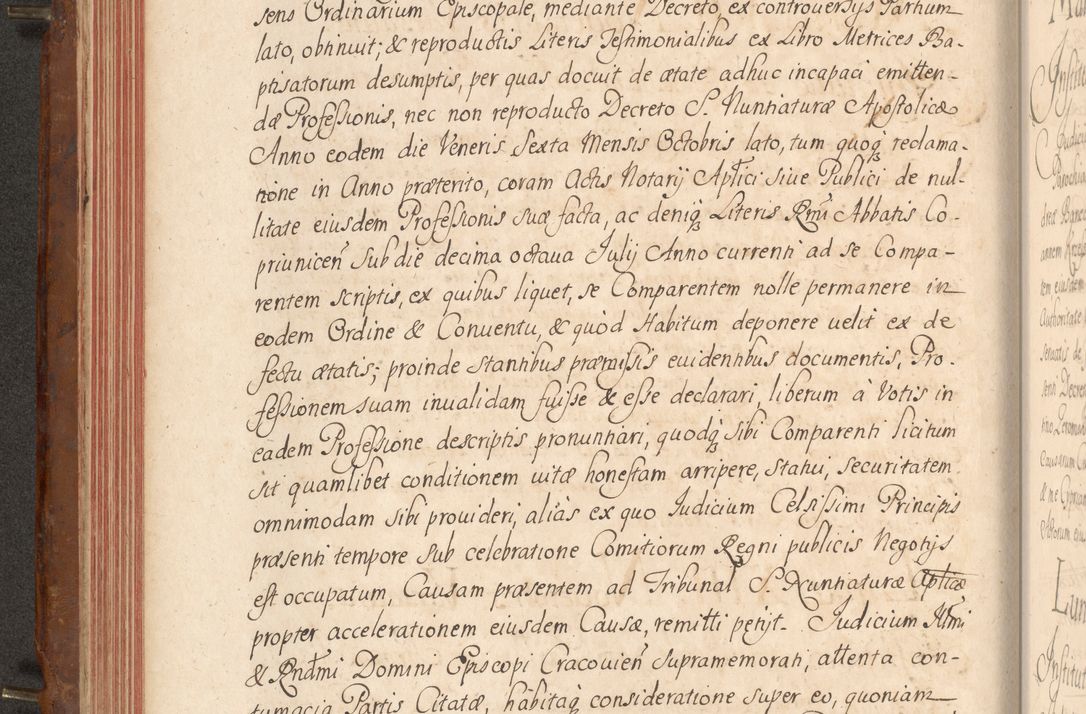 sens Ordinarium Episcopale, mediante Decreto, ex controversijs Partium
lato, obtinuit; & reproductis Literis Testimonialibus ex Libro Metrices Ba-
ptisatorum desumptis, per quas docuit de ætate adhuc incapaci emitten-
dæ Professionis, nec non reproducto Decreto S. Nuntiaturæ Apostolicæ
Anno eodem die Veneris Sexta Mensis Octobris lato, tum quoq3 reclama-
tione in Anno præterito, coram Actis Notarij Apt̃ici siue Publici de nul-
litate eiusdem Professionis suæ facta, ac deniq3 Literis Rm̃i Abbatis Co-
priunicen̄ sub die decima octaua Julij Anno currenti ad se Compa-
rentem scriptis, ex quibus liquet, se Comparentem nolle permanere in
eodem Ordine & Conuentu, & quòd Habitum deponere uelit ex de
fectu ætatis; proinde stantibus præmissis euidentibus documentis, Pro-
fessionem suam inualidam fuisse & esse declarari, liberum à Votis in
eadem Professione descriptis pronuntiari, quodq3 sibi Comparenti licitum
sit quamlibet conditionem uitæ honestam arripere, statui, securitatem
omnimodam sibi prouideri, aliàs ex quo Judicium Celsissimi Principis
præsenti tempore sub celebratione Comitiorum Regni publicis Negotijs
est occupatum, Causam præsentem ad Tribunal S. Nuntiaturæ Aplicæ
propter accelerationem eiusdem Causæ, remitti petijt. Judicium Illm̃i
& Rndm̃i Domini Episcopi Cracouien̄ supramemorati, attenta con-
tumacia Partis Citatæ, habitaq3 consideratione super eo, quoniam